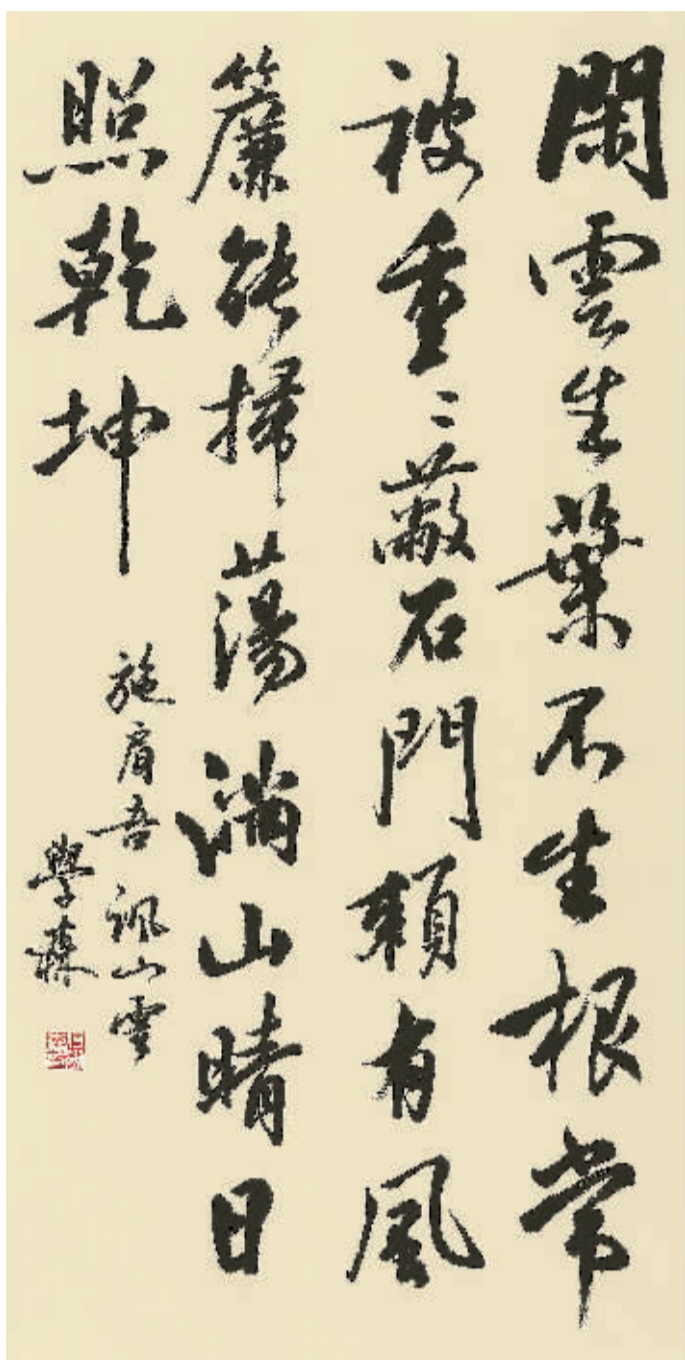 閑雲生葉不生根常
被重〻蔽石門賴有風
簾能掃蕩滿山晴日
照乾坤
施肩吾諷山雲
學森